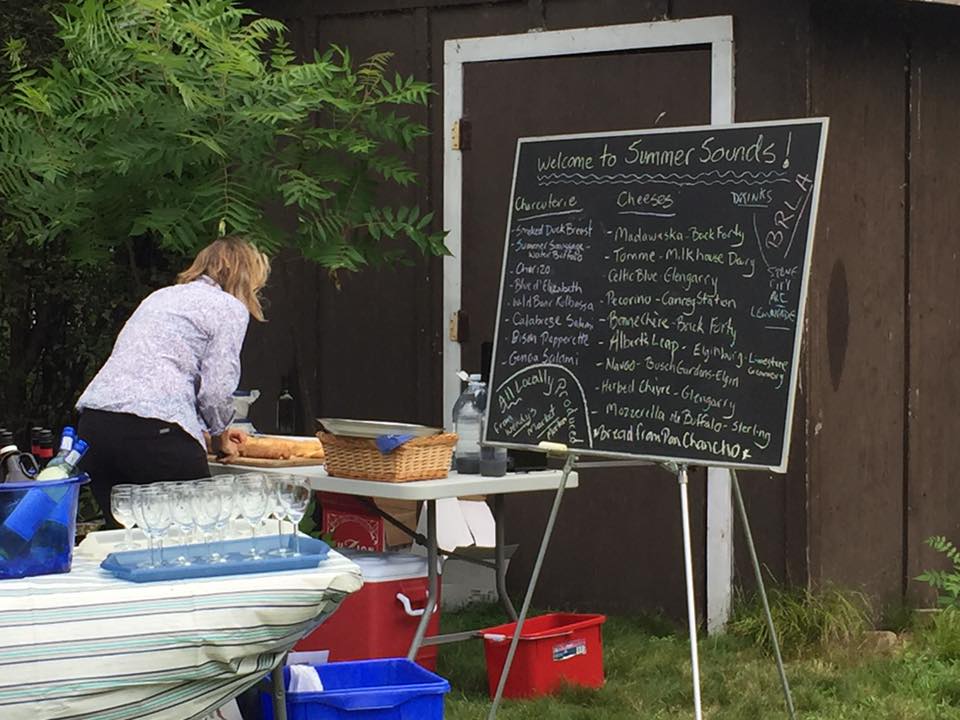 Welcome to Summer Sounds!
Charcuterie
- Smoked Duck Breast
- Summer Sausage -
Water Buffalo
- Chorizo
- Blue d'Elizabeth
- Wild Boar Kolbossa
- Calabrege Salami
- Bison Pepperette
- Genoa Salami
All Locally Produced
From Wendy's
Market
Cheeses
- Madawaska - Back Forty
- Tomme - Milkhouse Dairy
Celtic Blue - Glengarry
- Pecorino - Conroy Station
- Bonnechère - Back Forty
- Albert's Leap - Elginburg - Limestone
Creamery
- Navoo - Busch Gardens - Elgin
- Herbed Chèvre - Glengarry
- Mozzerella di Buffalo - Sterling
*Bread from Pan Chancho*
DRINKS
BRLA
STONE
CITY
ALE
LEMONADE